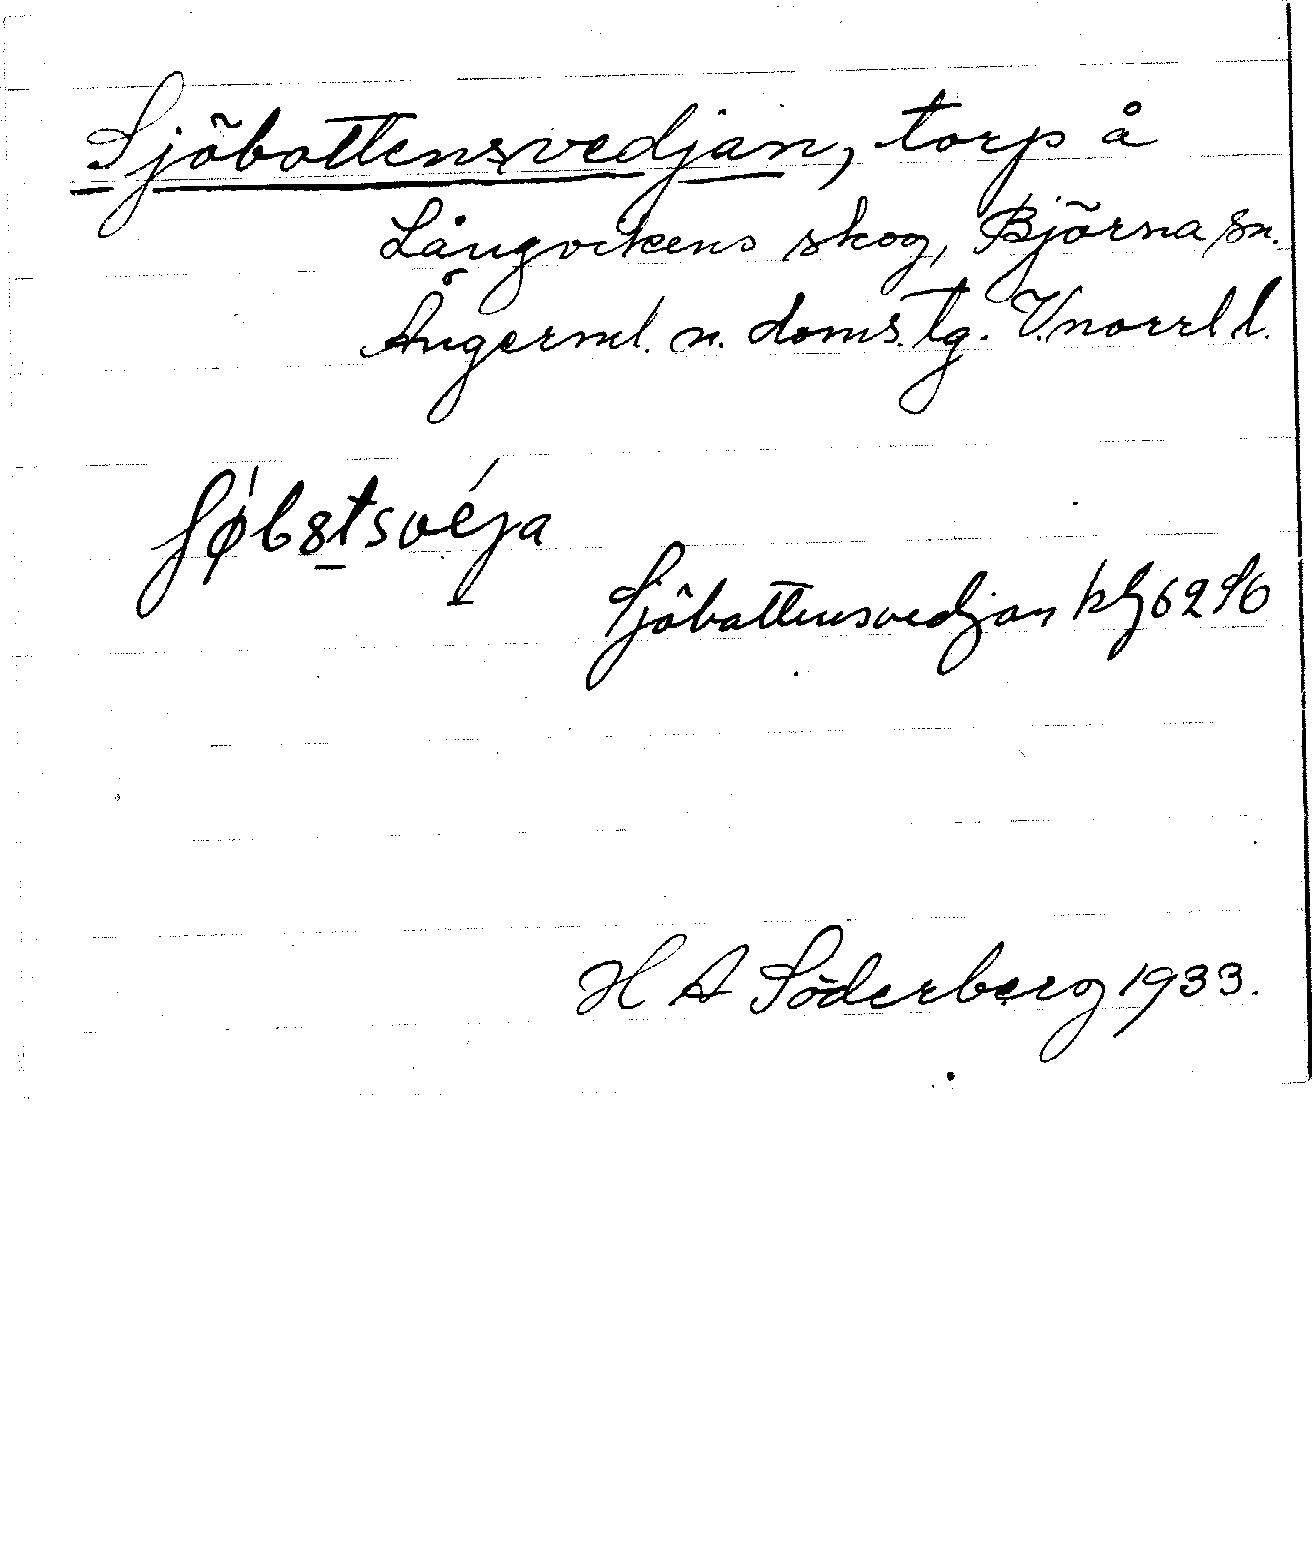 Sjöbottensvedjan, torp å
Långvikens skog, Björna sn.
Ångerml. n. doms. tg. V.norrl l.
Sjöbottensvedjan kg 62 S6
H A Söderberg 1933.